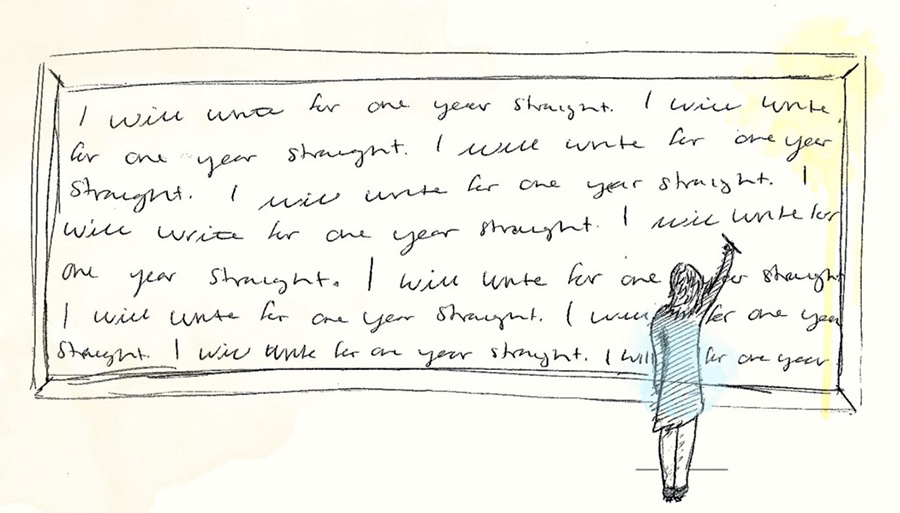 I will write for one year straight. I will write
for one year straight. I will write for one year
straight. I will write for one year straight. I
will write for one year straight. I will write for
one year straight. I will write for one year straight
I will write for one year straight. I will for one year
straight. I will write for one year straight. I will for one year